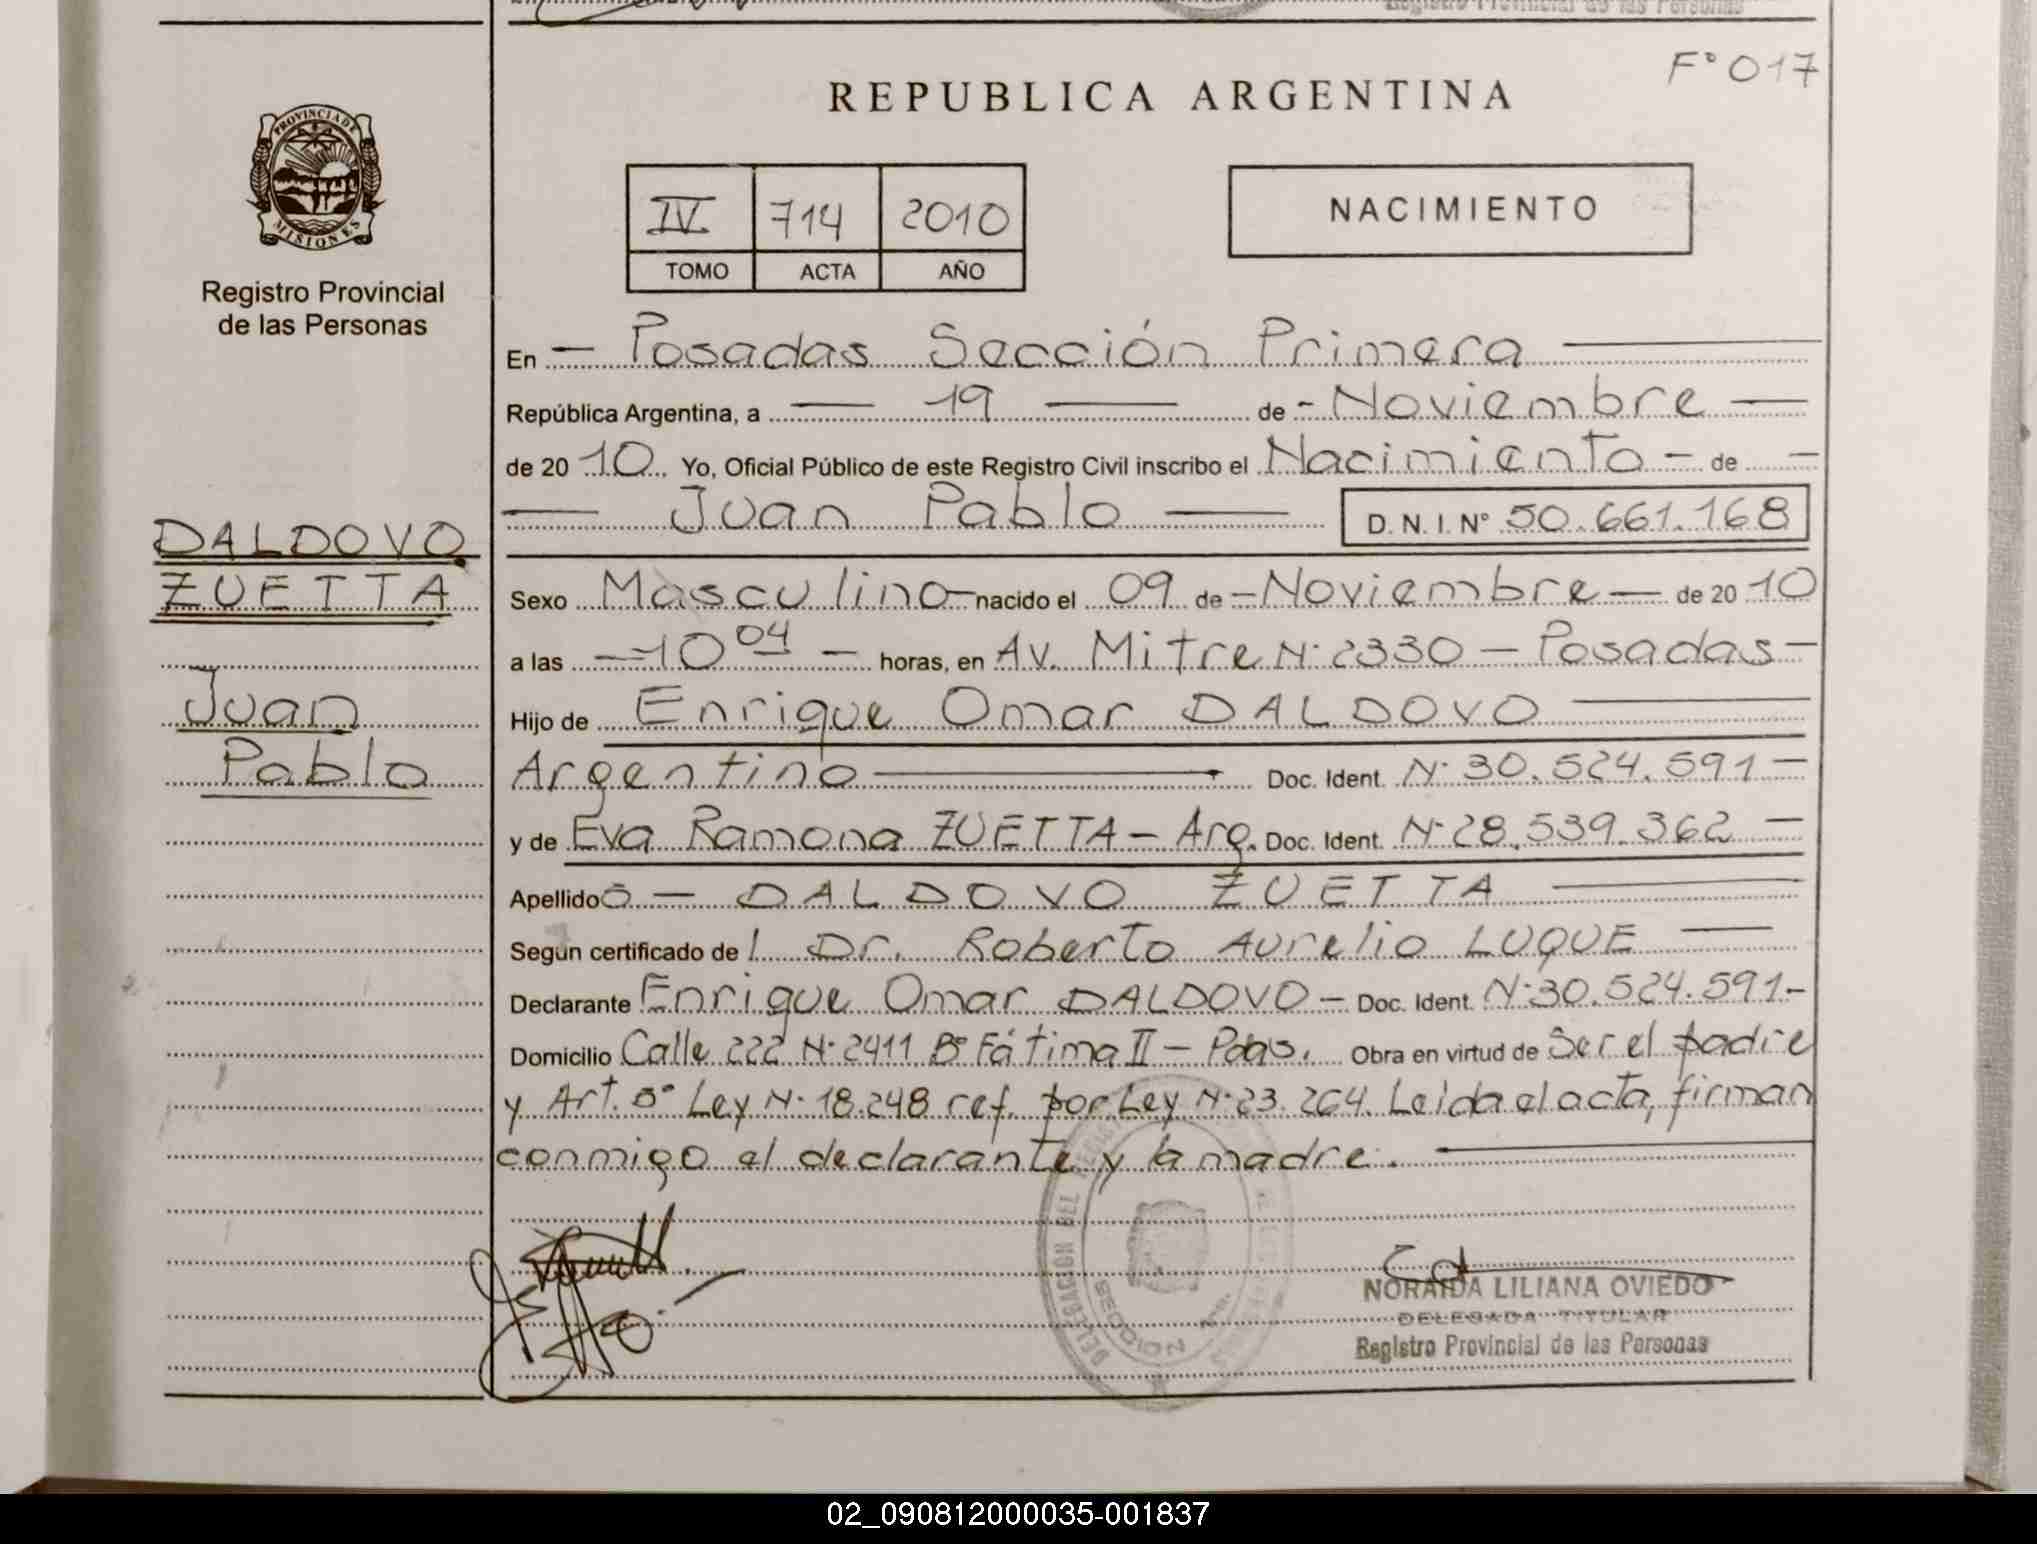 Registro Provincial de las Personas
F° 017
REPUBLICA ARGENTINA
PROVINCIA DE
MISIONES
Registro Provincial
de las Personas
IV 714 2010
TOMO ACTA AÑO
NACIMIENTO
En — Posadas Sección Primera —
República Argentina, a — 19 — de - Noviembre —
de 20 10 Yo, Oficial Público de este Registro Civil inscribo el Nacimiento - de -
— Juan Pablo — D.N.I. N° 50.661.168
DALDOVO
ZUETTA
Juan
Pablo
Sexo Masculino - nacido el 09 de - Noviembre - de 20 10
a las - 10 04 - horas, en Av. Mitre N° 2330 - Posadas -
Hijo de Enrique Omar DALDOVO —
Argentino — Doc. Ident. N° 30.524.591 —
y de Eva Ramona ZUETTA - Arg. Doc. Ident. N° 28.539.362 —
Apellido - DALDOVO ZUETTA —
Según certificado de l Dr. Roberto Aurelio LUQUE —
Declarante Enrique Omar DALDOVO - Doc. Ident. N° 30.524.591-
Domicilio Calle 222 N° 2411 B° Fátima II - Pdas. Obra en virtud de Ser el padre
y Art. 5° Ley N° 18.248 ref. por Ley N° 23.264. Leida el acta, firman
conmigo el declarante y la madre. —
DELEGACION DEL
SECCION
NORAIDA LILIANA OVIEDO
DELEGADA TITULAR
Registro Provincial de las Personas
02_090812000035-001837